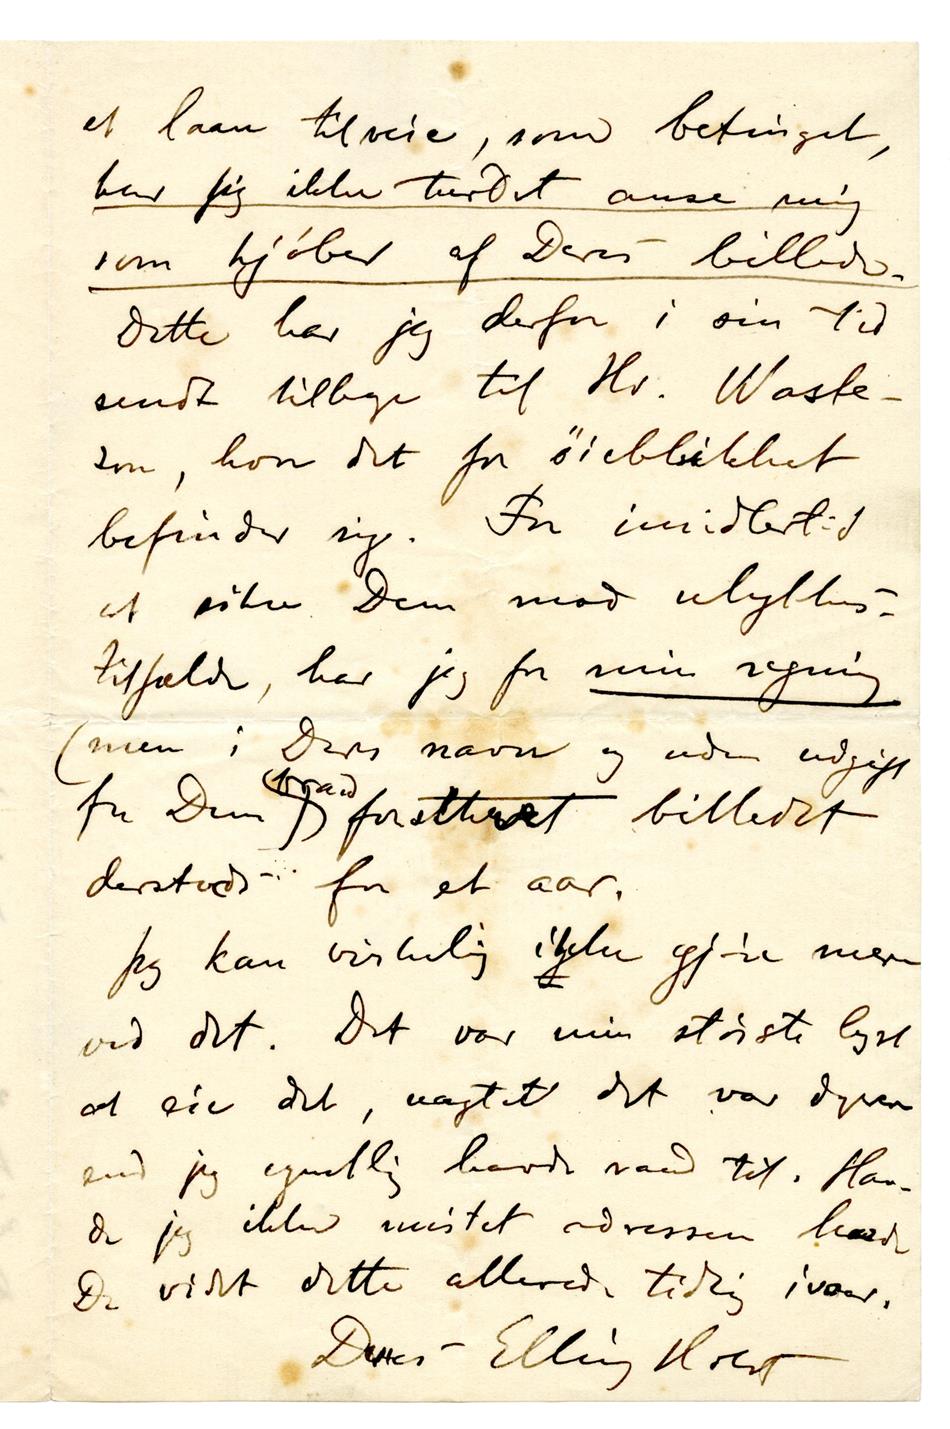 et laan tilveie, som betinget,
har jeg ikke turdet anse mig
som kjøber af Deres billede.
Dette har jeg derfor i sin tid
sendt tilbage til Hr. Waste-
son, hvor det for öieblikket
befinder sig. For imidlertid
at sikre Dem mod ulykkes-
tilfælde, har jeg for min regning
(men i Deres navn og uden udgift
for Dem) brand forsikret billedet
dersteds for et aar.
Jeg kan virkelig ikke gjøre mere
ved det. Det var min største lyst
at eie det, uagtet det var dyrere
end jeg egentlig havde raad til. Hav-
de jeg ikke mistet adressen havde
De vidst dette allerede tidlig ivaar.
Deres Elling Holst